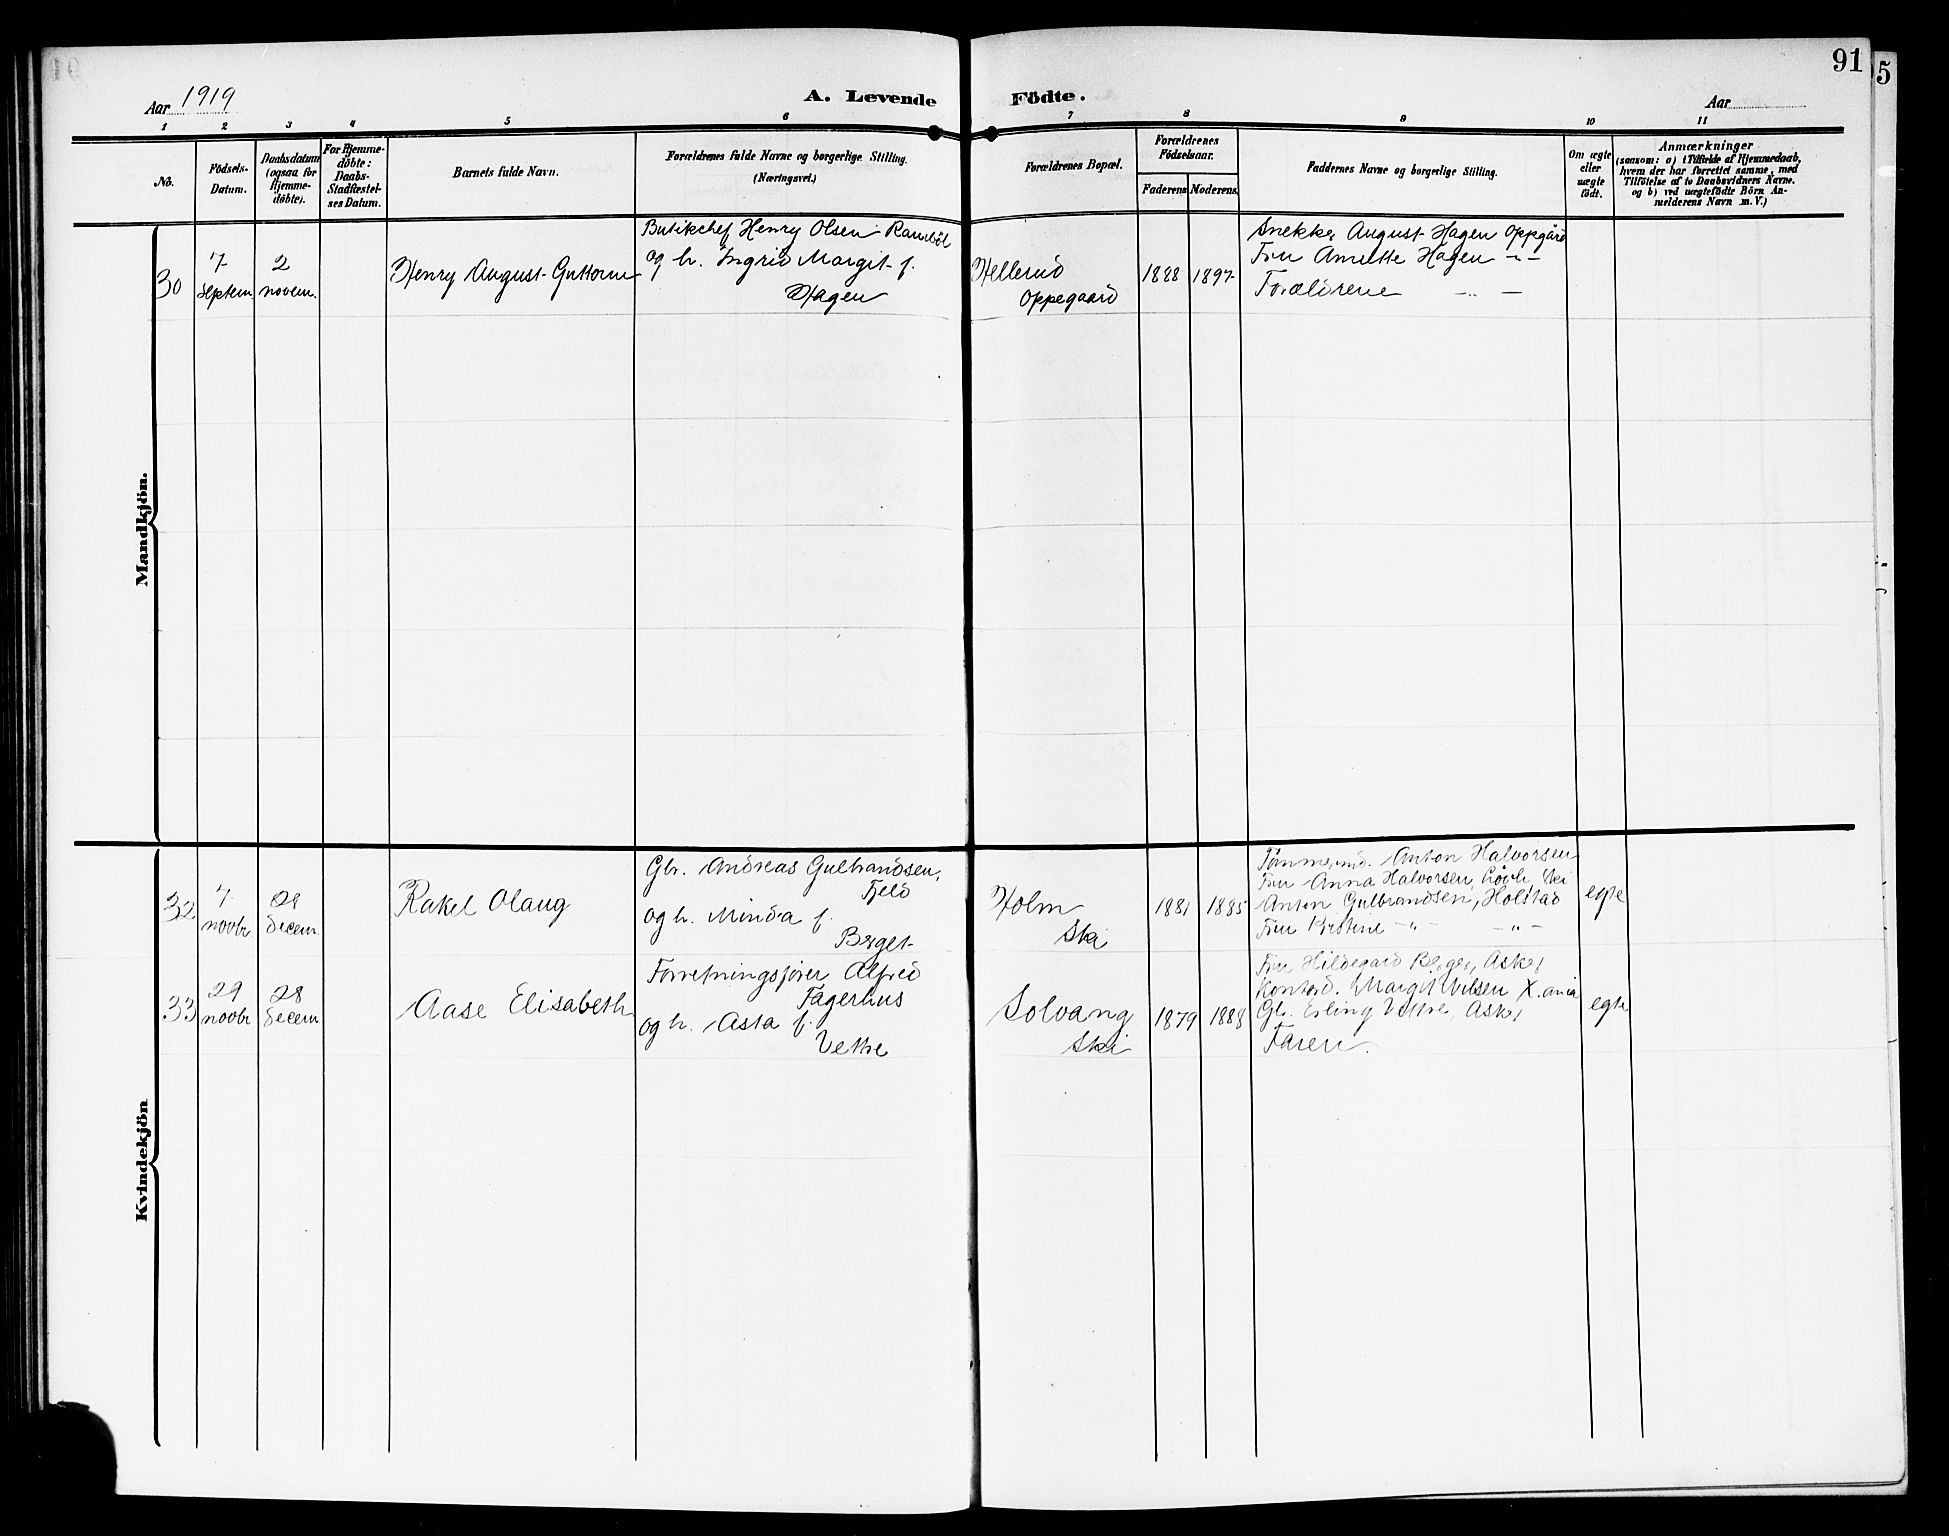 91
5
Aar 1919
A. Levende Födte.
Aar
1 2 3 4 5 6 7 8 9 10 11
No.
Födsels-
Datum.
Daabsdatum
(ogsaa for
Hjemme-
döbte).
For Hjemme-
döbte:
Daabs-
Stadfæstel-
ses Datum.
Barnets fulde Navn.
Forældrenes fulde Navne og borgerlige Stilling.
(Næringsvei.)
Forældrenes Bopæl.
Forældrenes
Födselsaar.
Faderens
Moderens.
Faddernes Navne og borgerlige Stilling.
Om ægte
eller
uægte
födt.
Anmærkninger
(saasom: a) i Tilfælde af Hjemmedaab,
hvem der har forrettet samme, med
Tilföielse af to Daabsvidners Navne.
og b) ved uægtefödte Börn An-
melderens Navn m. V.)
Mandkjön.
30
7
septem.
2
novem.
Henry August Guttorm
Butikchef Henry Olsen
og h. Ingrid Margit f.
Hagen
Hellerud
Oppegaard
1888
1897
Snekker August Hagen Oppgård
Fru Anette Hagen -"-
Forældrene -"-
Kvindekjön
32
7
novbr
28
decem.
Rakel Olaug
Gbr. Andreas Gulbrandsen,
Fjeld
og h. Minda f.
Berget
Holm
Ski
1881
1885
Anton Halvorsen
Fru Anna Halvorsen, Ski
Anton Gulbrandsen, Holstad
Fru Kristine -"- -"-
egte
33
29
novbr
28
decem
Aase Elisabeth
Forretningsfører Alfred
Fagerhus
og h. Asta f.
Vettre
Solvang
Ski
1879
1888
Fru Hildegard Berger, Asker
Kontord. Margit Nilsen X.ania
Gb. Erling Vettre, Asker
Faren.
egte